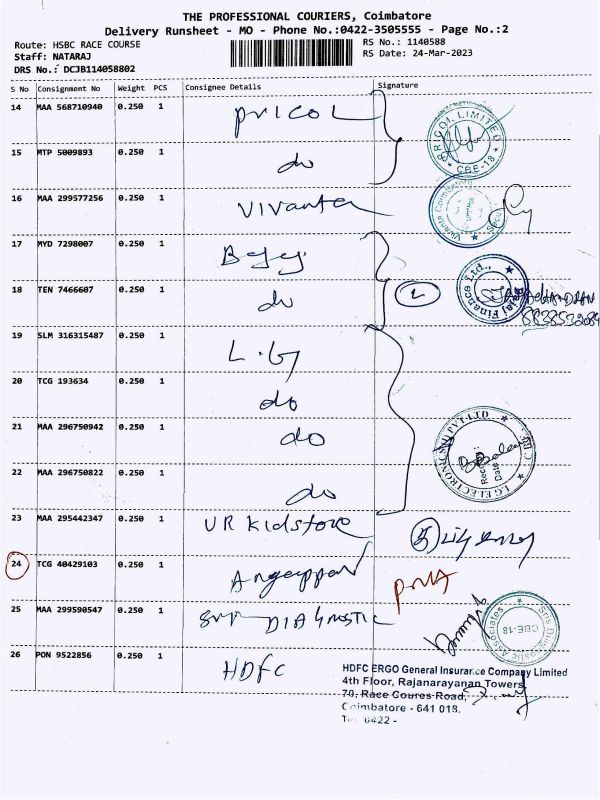 THE PROFESSIONAL COURIERS, Coimbatore
Delivery Runsheet - MO - Phone No.:0422-3505555 - Page No.:2
Route: HSBC RACE COURSE
RS No.: 1140588
Staff: NATARAJ
RS Date: 24-Mar-2023
DRS No.: DCJB114058802
S No Consignment No Weight PCS Consignee Details Signature
14 MAA 568710940 0.250 1 PRICOL
PRICOL LIMITED
CBE-18
15 MTP 5009893 0.250 1 do
16 MAA 299577256 0.250 1 Vivanta
Vivanta Coimbatore
17 MYD 7298007 0.250 1 Bajaj
Bajaj Finance Ltd.,
18 TEN 7466607 0.250 1 do 2
19 SLM 316315487 0.250 1 L.G
20 TCG 193634 0.250 1 do
21 MAA 296750942 0.250 1 do
LG ELECTRONICS (I) PVT LTD
Date
22 MAA 296750822 0.250 1 do
23 MAA 295442347 0.250 1 UR kidstore
24 TCG 40429103 0.250 1
25 MAA 299590547 0.250 1 DIAGNOSTIC
Diagnostic Associates
CBE-18
26 PON 9522856 0.250 1 HDFC
HDFC ERGO General Insurance Company Limited
4th Floor, Rajanarayanan Towers,
70, Race Coures Road,
Coimbatore - 641 018.
Tel 0422 -